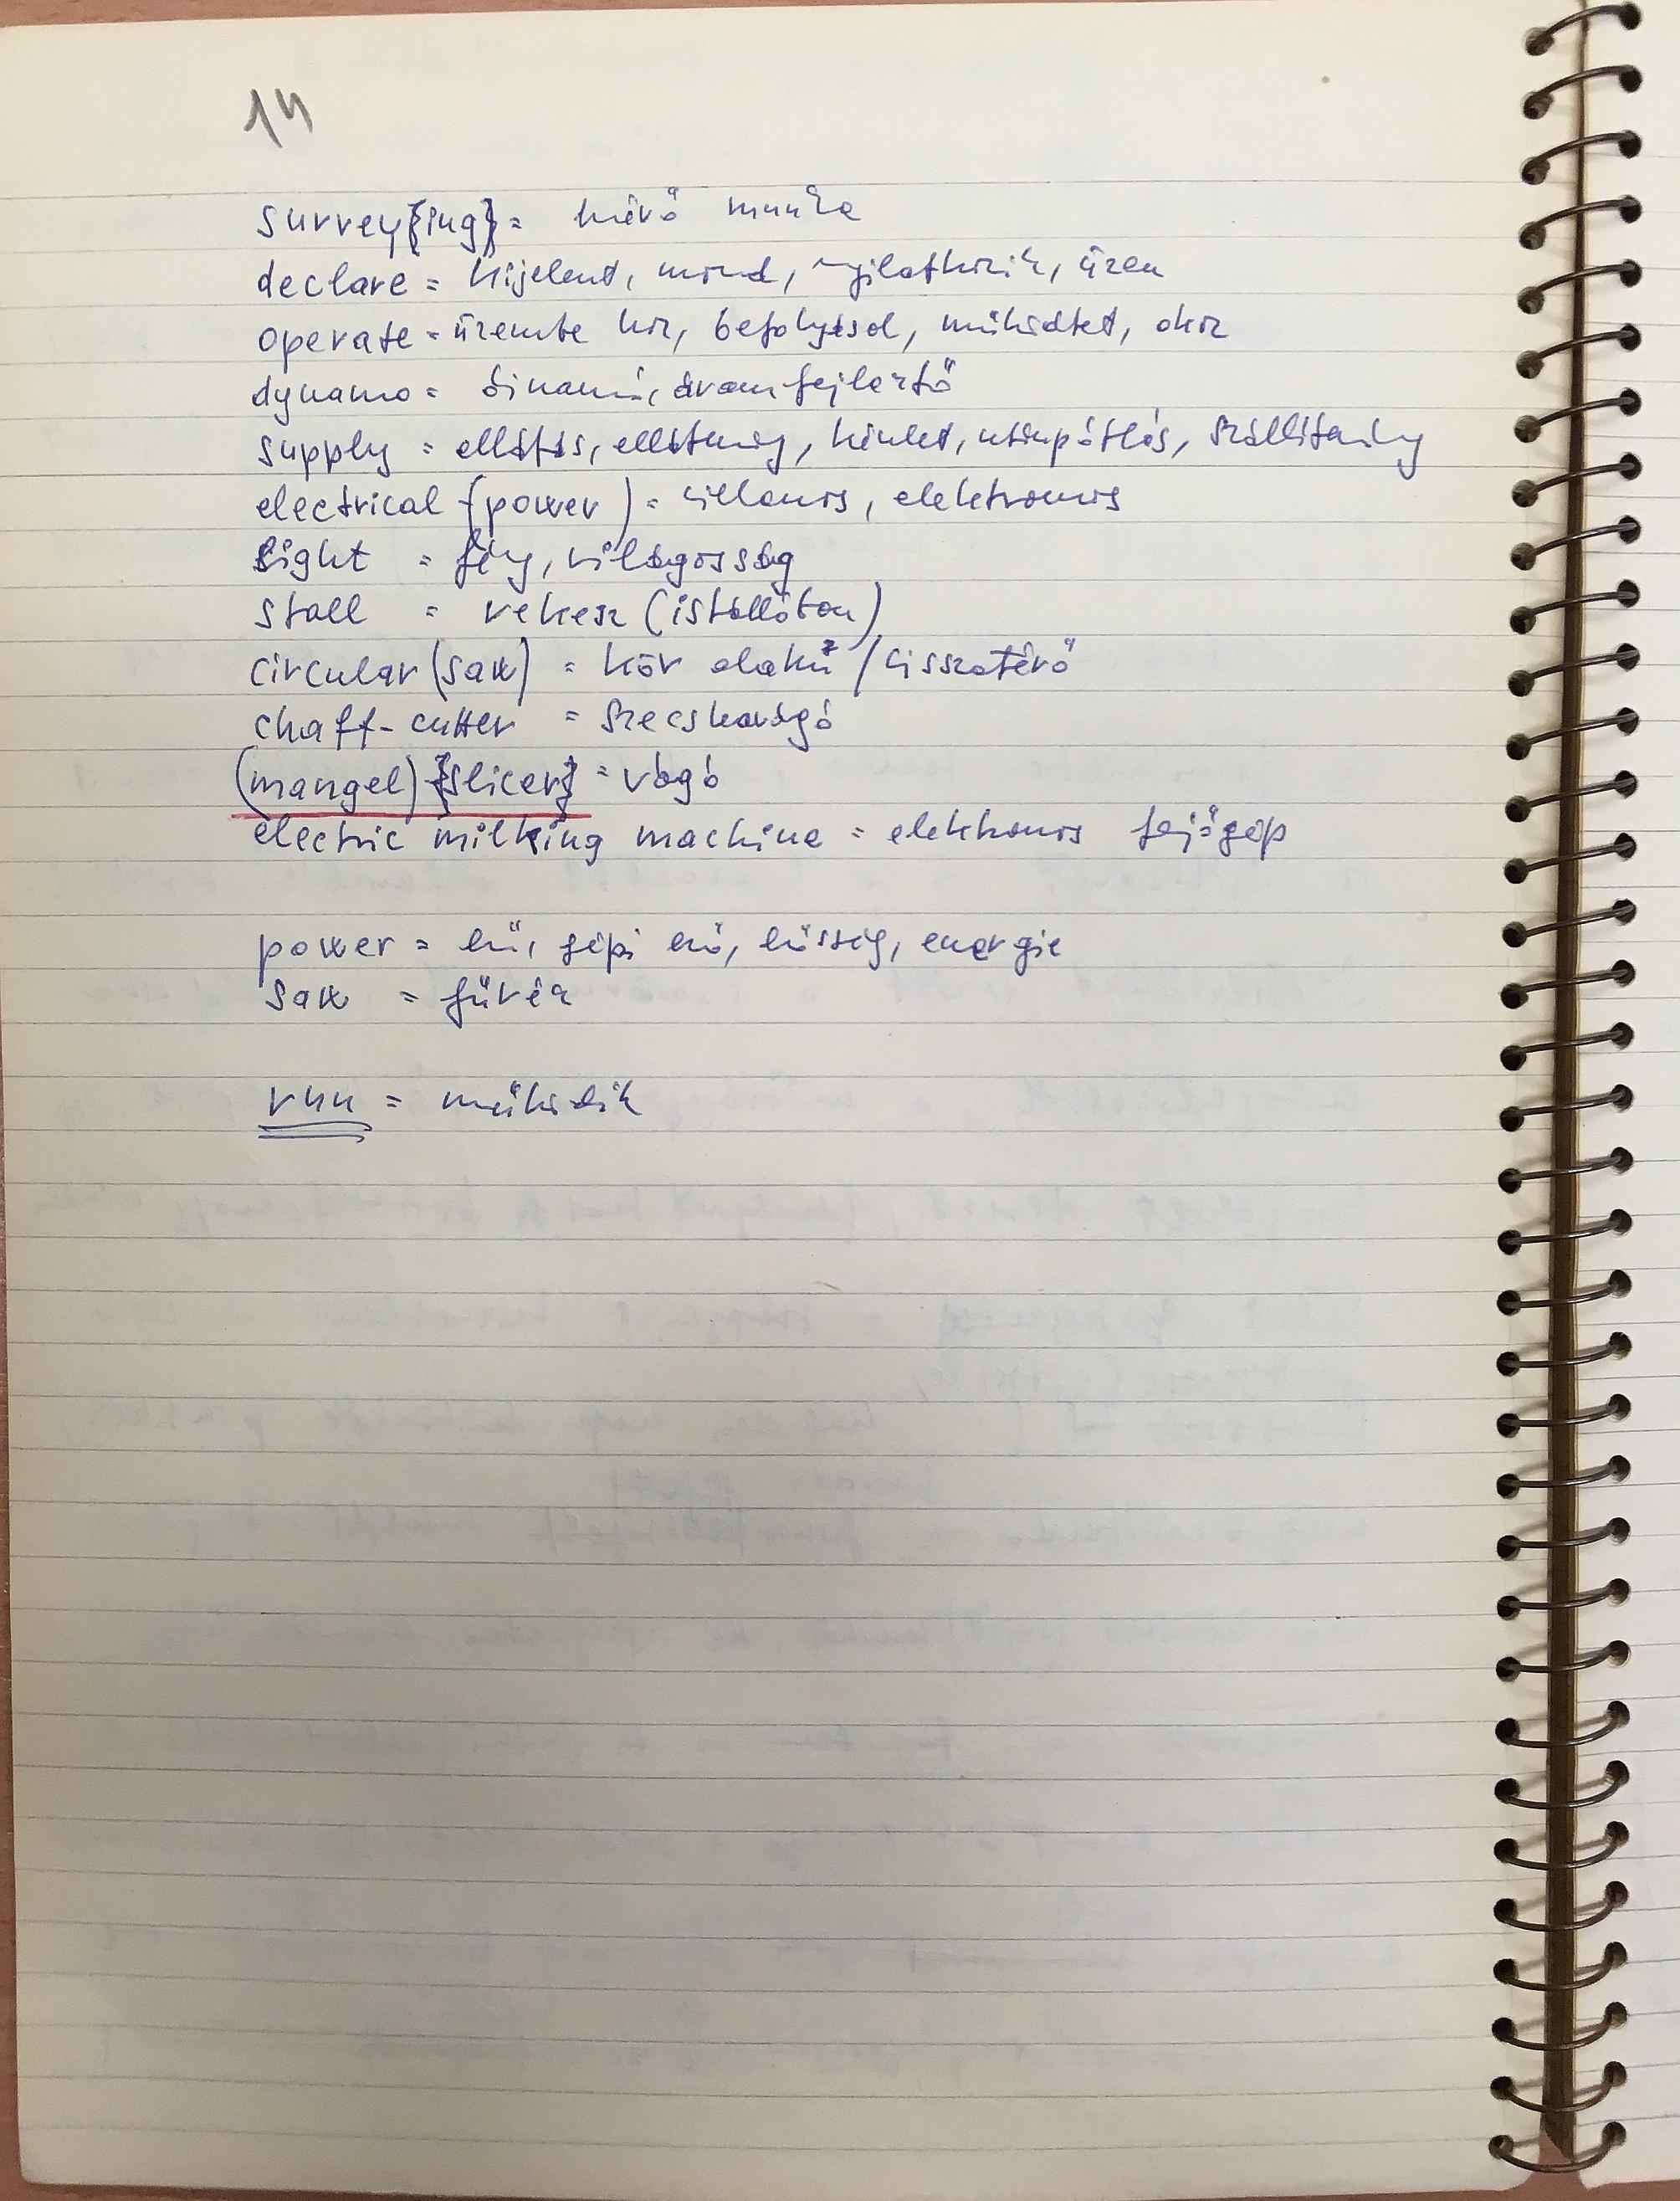 14
survey{ing} = mérő munka
declare = kijelent, mond, nyilatkozik, üzen
operate = üzembe hoz, befolyásol, működtet, okoz
dynamo = dinamó, áramfejlesztő
supply = ellátás, ellátmány, készlet, utánpótlás, szállítmány
electrical (power) = villamos, elektromos
light = fény, világosság
stall = rekesz (istállóban)
circular (saw) = kör alakú / visszatérő
chaff-cutter = szecskavágó
(mangel) {slicer} = vágó
electric milking machine = elektromos fejőgép
power = erő, gépi erő, energia
saw = fűrész
run = működik